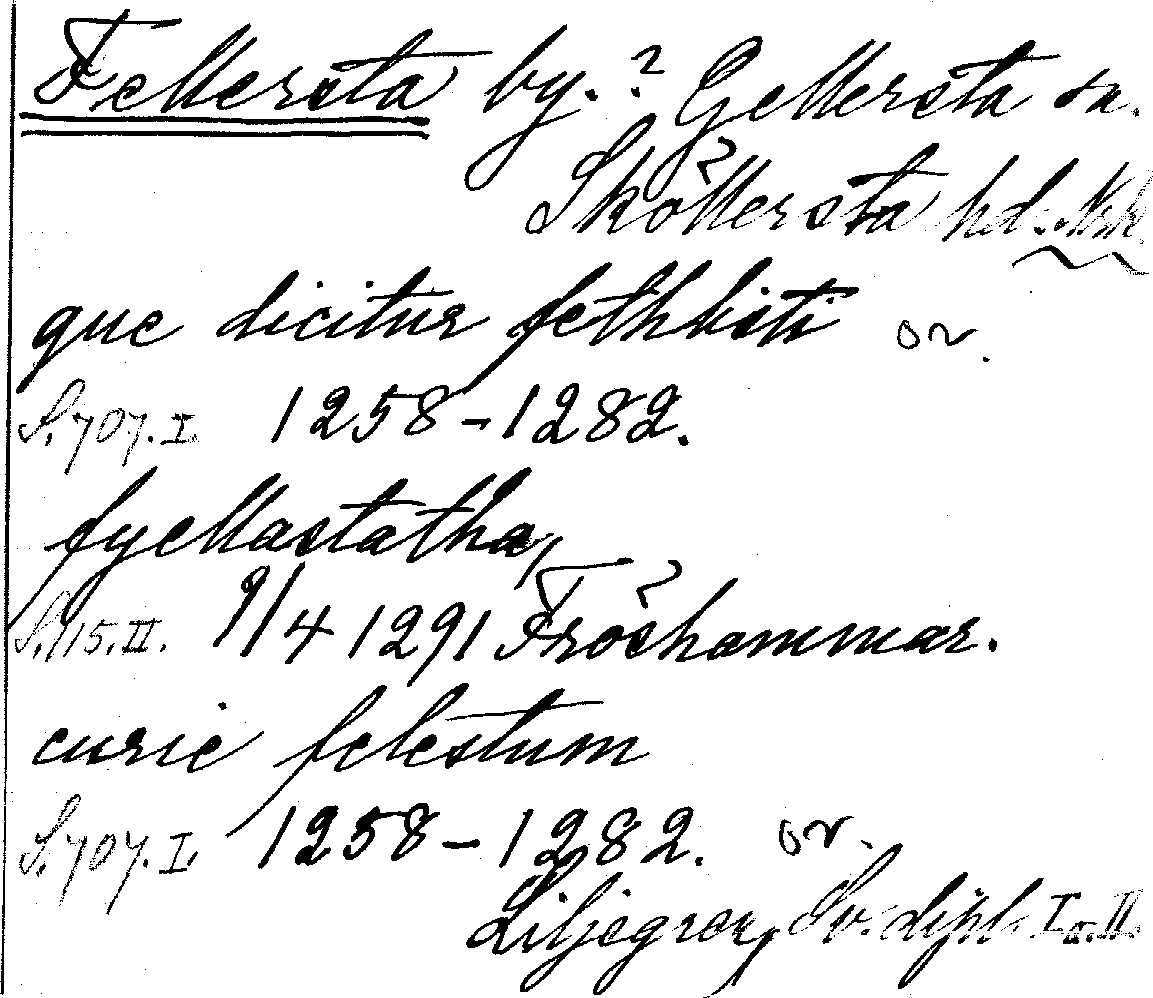 Fellersta by.? Gellersta sn.
Sköllersta hd. Nrk.
que dicitur fethlisti or.
S. 707. I. 1258-1282.
fyellastatha,
S. 115. II. 9/4 1291 Fröshammar.
curie felestum
S. 707. I. 1258-1282. or.
Liljegren, Sv. dipl. I o. II.